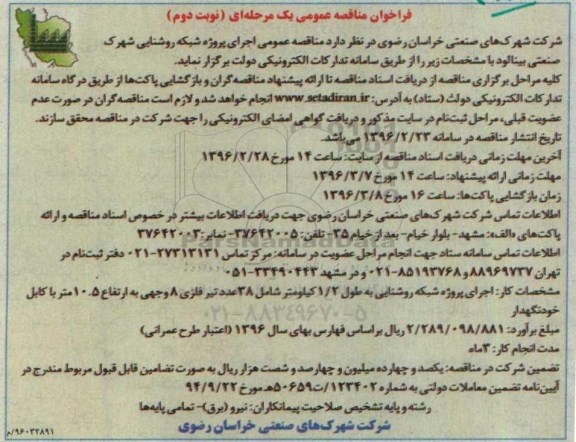 فراخوان مناقصه عمومی یک مرحله‌ای (نوبت دوم)
شرکت شهرک‌های صنعتی خراسان رضوی در نظر دارد مناقصه عمومی اجرای پروژه شبکه روشنایی شهرک
صنعتی بینالود با مشخصات زیر را از طریق سامانه تدارکات الکترونیکی دولت برگزار نماید.
کلیه مراحل برگزاری مناقصه از دریافت اسناد مناقصه تا ارائه پیشنهاد مناقصه‌گران و بازگشایی پاکت‌ها از طریق درگاه سامانه
تدارکات الکترونیکی دولت (ستاد) به آدرس: www.setadiran.ir انجام خواهد شد و لازم است مناقصه‌گران در صورت عدم
عضویت قبلی، مراحل ثبت‌نام در سایت مذکور و دریافت گواهی امضای الکترونیکی را جهت شرکت در مناقصه محقق سازند.
تاریخ انتشار مناقصه در سامانه ۱۳۹۶/۲/۲۳ می‌باشد.
آخرین مهلت زمانی دریافت اسناد مناقصه از سایت: ساعت ۱۴ مورخ ۱۳۹۶/۲/۲۸
مهلت زمانی ارائه پیشنهاد: ساعت ۱۴ مورخ ۱۳۹۶/۳/۷
زمان بازگشایی پاکت‌ها: ساعت ۱۶ مورخ ۱۳۹۶/۳/۸
اطلاعات تماس شرکت شهرک‌های صنعتی خراسان رضوی جهت دریافت اطلاعات بیشتر در خصوص اسناد مناقصه و ارائه
پاکت‌های «الف»: مشهد- بلوار خیام- بعد از خیام ۳۵- تلفن: ۳۷۶۴۲۰۰۵- نمابر: ۳۷۶۴۲۰۰۳
اطلاعات تماس سامانه ستاد جهت انجام مراحل عضویت در سامانه: مرکز تماس ۲۷۳۱۳۱۳۱-۰۲۱ دفتر ثبت‌نام در
تهران ۸۸۹۶۹۷۳۷ و ۸۵۱۹۳۷۶۸-۰۲۱ و در مشهد ۳۳۴۹۰۴۴۳-۰۵۱
مشخصات کار: اجرای پروژه شبکه روشنایی به طول ۱/۲ کیلومتر شامل ۳۸ عدد تیر فلزی ۸ وجهی به ارتفاع ۱۰.۵ متر با کابل
خودنگهدار
مبلغ برآورد: ۲/۲۸۹/۰۹۸/۸۸۱ ریال بر اساس فهارس بهای سال ۱۳۹۶ (اعتبار طرح عمرانی)
مدت انجام کار: ۳ ماه
تضمین شرکت در مناقصه: یکصد و چهارده میلیون و چهارصد و شصت هزار ریال به صورت تضامین قابل قبول مربوط مندرج در
آیین‌نامه تضمین معاملات دولتی به شماره ۱۲۳۴۰۲/ت۵۰۶۵۹هـ مورخ ۹۴/۹/۲۲
رشته و پایه تشخیص صلاحیت پیمانکاران: نیرو (برق)- تمامی پایه‌ها
شرکت شهرک‌های صنعتی خراسان رضوی
۹۶۰۳۲۸۹۱/م
ParsNamadData
۰۲۱-۸۸۳۴۹۶۷۰-۵